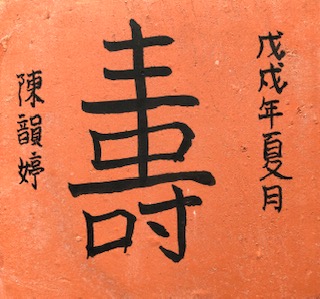 戊戌年夏月
壽
陳韻婷